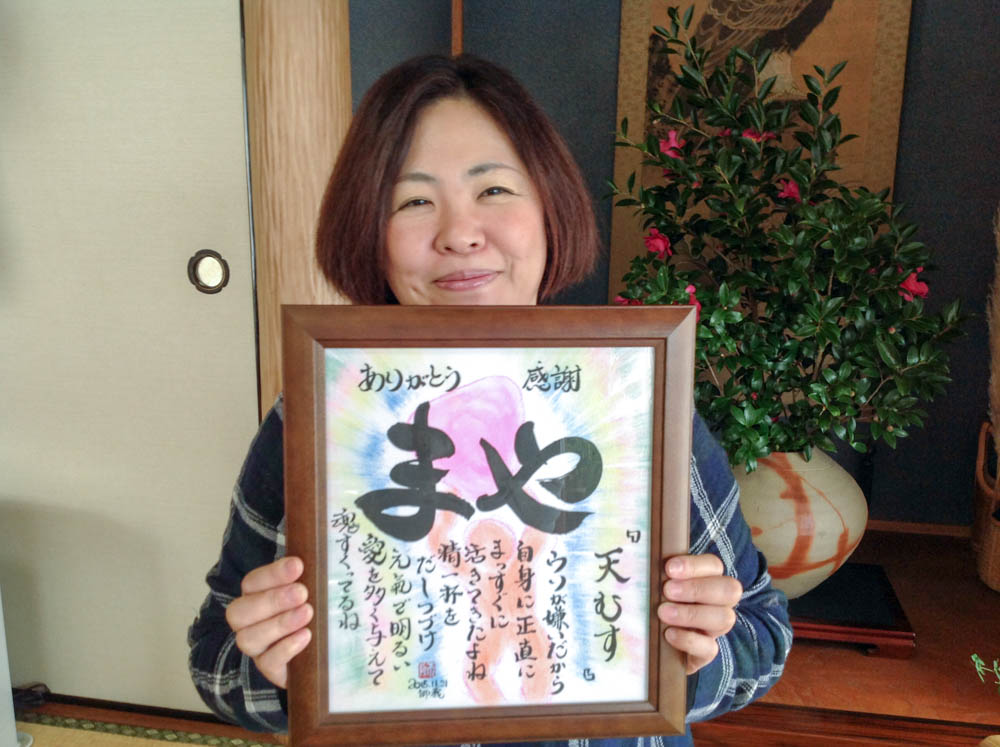 ありがとう
感謝
まや
天むす
ウソが嫌いだから
自身に正直に
まっすぐに
活きてきたよね
精一杯を
だしつづけ
元氣で明るい
愛を多く与えて
魂すくってるね